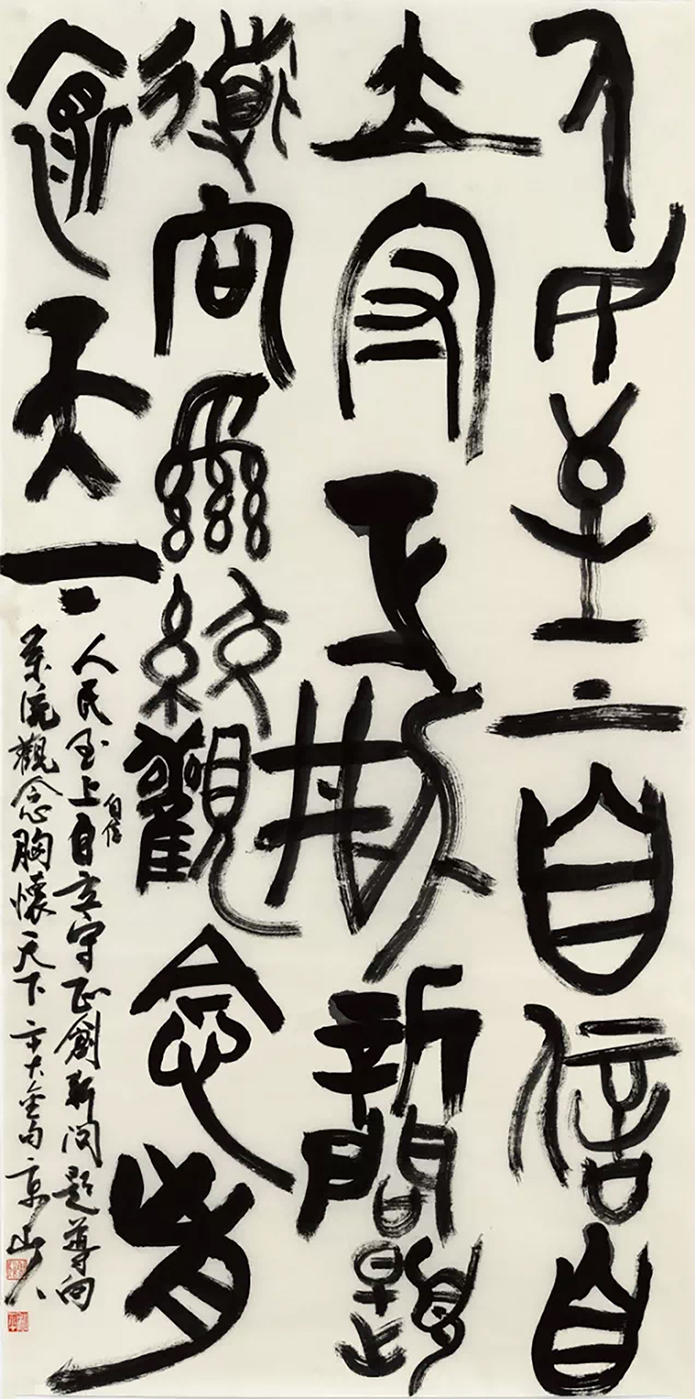 人民至上自信自
立守正刱新問題
導向系統觀念胸
懷天下
人民至上自信自立守正創新問題導向
系統觀念胸懷天下二十大金句京山人